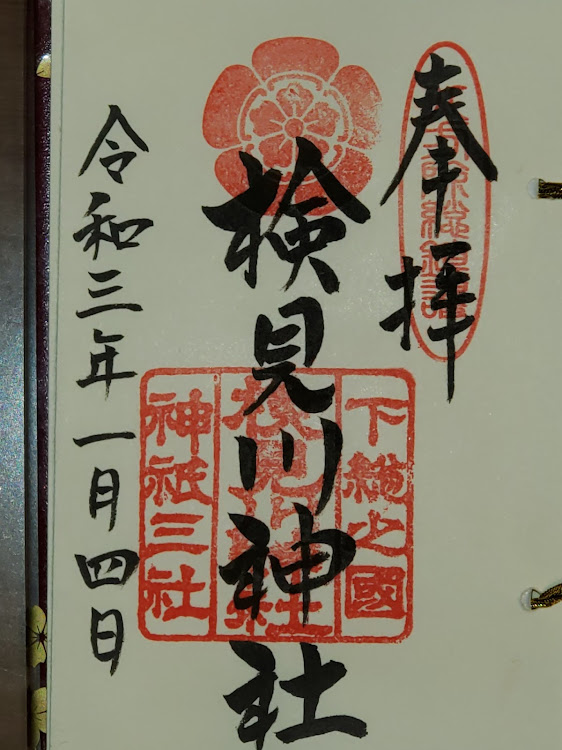 奉拝
検見川神社
下総之國
検見川神社
神祇三社
令和三年一月四日